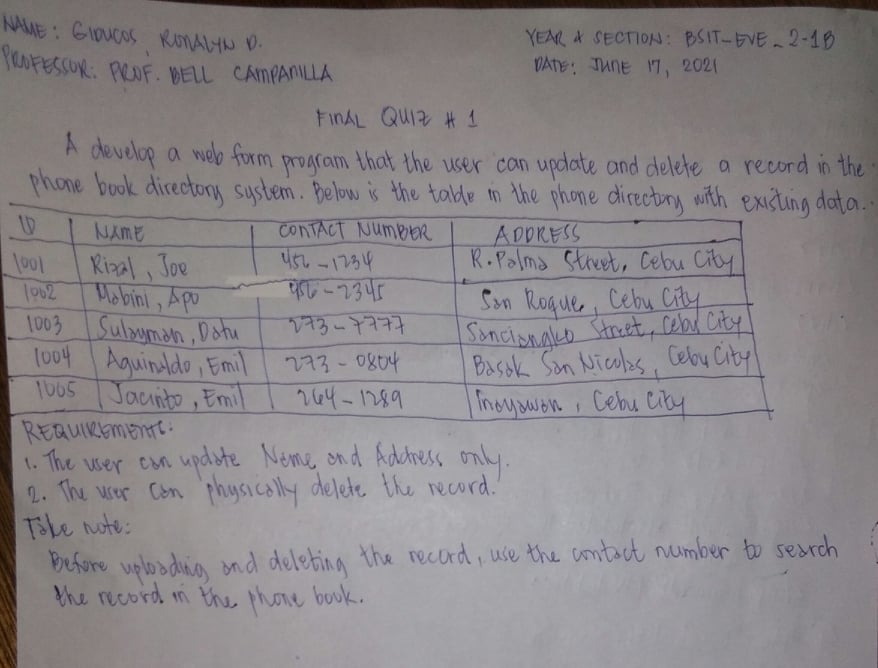 NAME: GIDUCOS, RONALYN D. YEAR & SECTION: BSIT-EVE_2-1B
PROFESSOR: PROF. BELL CAMPANILLA DATE: JUNE 17, 2021
FINAL QUIZ # 1
A develop a web form program that the user can update and delete a record in the
phone book directory system. Below is the table in the phone directory with existing data.
ID NAME CONTACT NUMBER ADDRESS
1001 Rizal, Joe 456-1234 R. Palma Street, Cebu City
1002 Mabini, Apo 456-2345 San Roque, Cebu City
1003 Sulayman, Datu 273-7777 Sanciangko Street, Cebu City
1004 Aguinaldo, Emil 273-0804 Basak San Nicolas, Cebu City
1005 Jacinto, Emil 264-1289 Inayawan, Cebu City
REQUIREMENTS:
1. The user can update Name and Address only.
2. The user can physically delete the record.
Take note:
Before uploading and deleting the record, use the contact number to search
the record in the phone book.